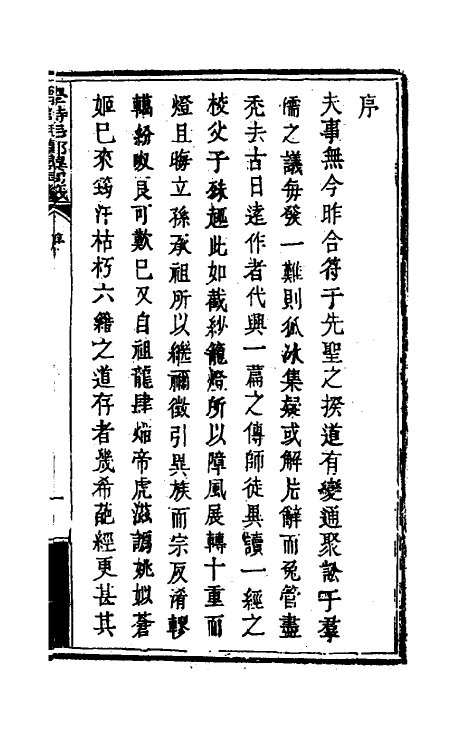 序
夫事無今昨合符于先聖之揆道有變通聚訟于羣
儒之議每發一難則狐冰集疑或解片辭而兔管盡
禿去古日遠作者代興一篇之傳師徒異讀一經之
校父子殊趣此如截紗籠燈所以障風展轉十重而
燈且晦立孫承祖所以繼禰徵引異族而宗反淆轇
轕紛呶良可歎已又自祖龍肆焰帝虎滋譌姚姒蒼
姬已來筠汗枯朽六籍之道存者幾希葩經更甚其
學詩毛鄭異同籤
序
一